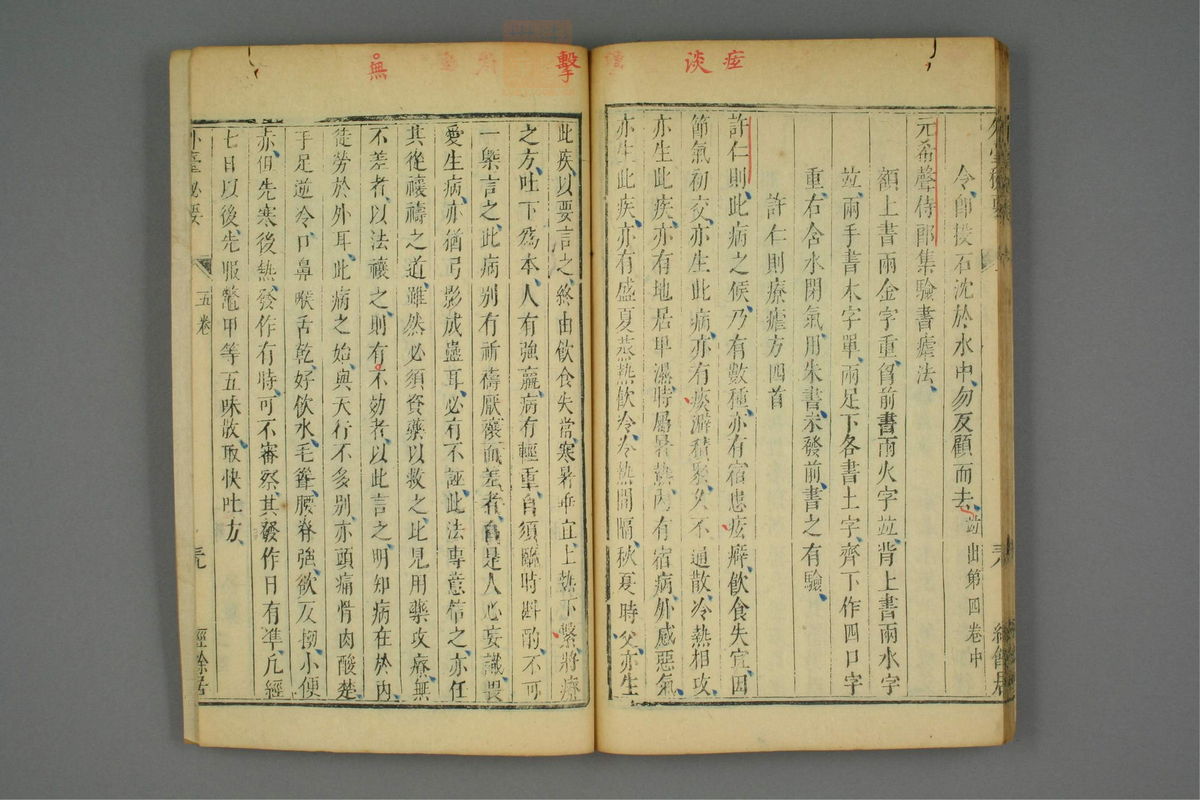 痃 淡
令郎拔石沈於水中勿反顧而去並出第四卷中
元希聲侍郎集驗書瘧法
額上書兩金字重眉前書兩火字並背上書兩水字
並兩手書木字單兩足下各書土字齊下作四口字
重右含水閉氣用朱書未發前書之有驗
許仁則療瘧方四首
許仁則此病之候乃有數種亦有宿患痃癖飲食失宜因
節氣初交亦生此病亦有痰澼積聚久不通散冷熱相攻
亦生此疾亦有地居卑濕時屬暑熱內有宿病外感惡氣
亦生此疾亦有盛夏蒸熱飲冷冷熱間隔秋夏時父亦生
擊 無
此疾以要言之終由飲食失常寒暑乖宜上熱下繫將療
之方吐下爲本人有強羸病有輕重自須臨時斟酌不可
一槩言之此病別有祈禱厭禳而差者自是人心妄識畏
愛生病亦猶弓影成蠱耳必有不誣此法專意信之亦任
其從禳禱之道雖然必須資藥以救之比見用藥攻療無
不差者以法禳之則有不効者以此言之明知病在於內
徒勞於外耳此病之始與天行不多別亦頭痛骨肉酸楚
手足逆冷口鼻喉舌乾好飲水毛聳腰脊強欲反拗小便
赤但先寒後熱發作有時可不審察其發作日有準凢經
七日以後先服鼈甲等五味散取快吐方
外臺必要 五卷 經餘居